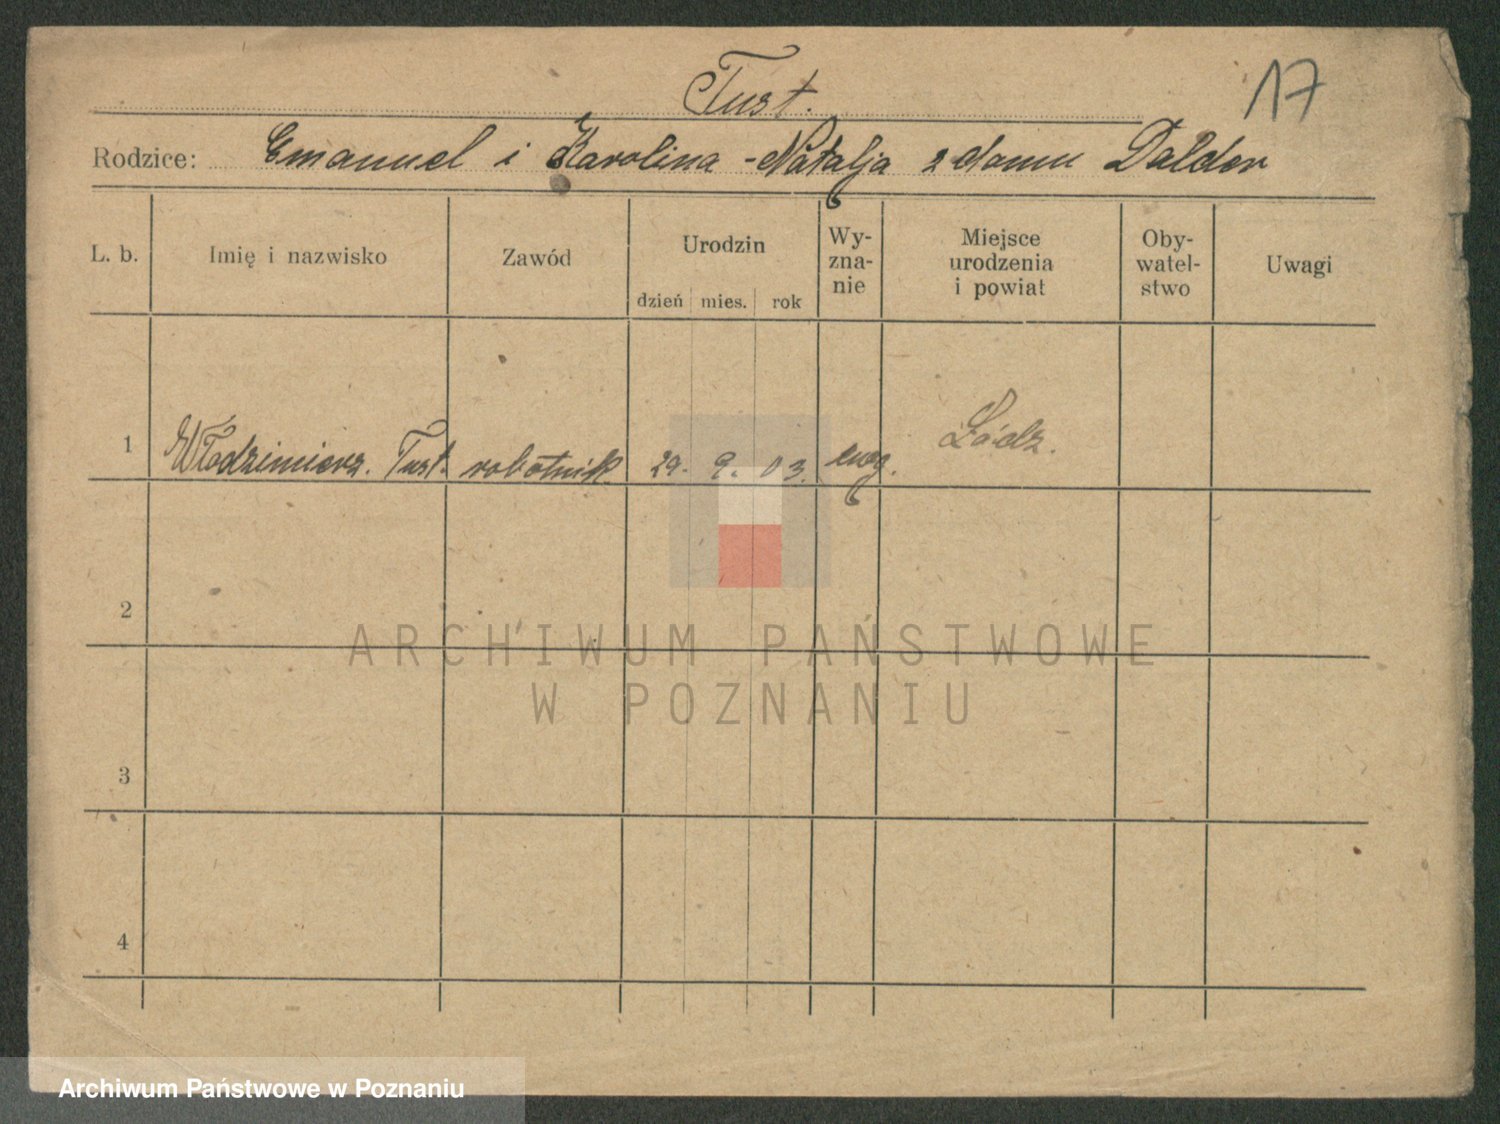 Tust.
17
Rodzice: Emanuel i Karolina - Natalja z domu Dalder
L. b. Imię i nazwisko Zawód Urodzin dzień mies. rok Wy-zna-nie Miejsce urodzenia i powiat Oby-watel-stwo Uwagi
1 Włodzimierz. Tust. robotnik 29. 9. 03. ewg. Łódz.
2
3
4
ARCHIWUM PAŃSTWOWE
W POZNANIU
Archiwum Państwowe w Poznaniu